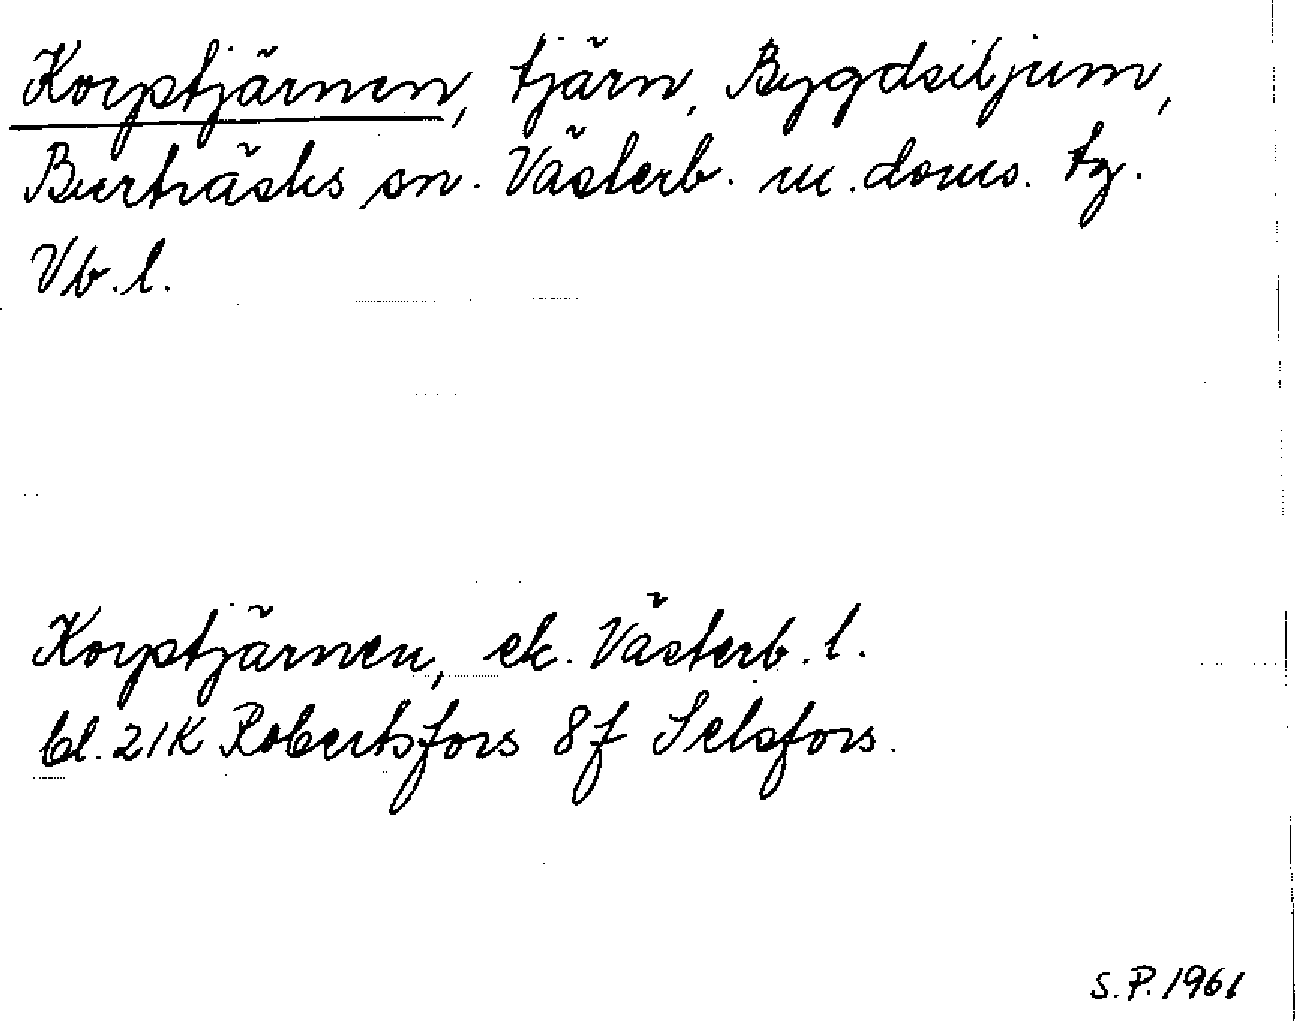 Korptjärnen, tjärn, Bygdsiljum,
Burträsks sn. Västerb. m. doms. tg.
Vb. l.
Korptjärnen, ek. Västerb. l.
bl. 21K Robertsfors 8f Selsfors.
S.P. 1961